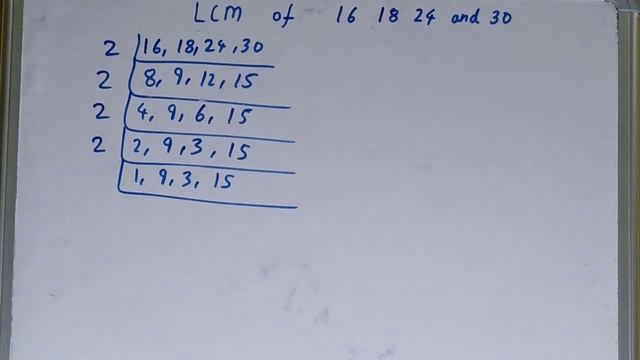 LCM of 16 18 24 and 30
2 16, 18, 24, 30
2 8, 9, 12, 15
2 4, 9, 6, 15
2 2, 9, 3, 15
1, 9, 3, 15